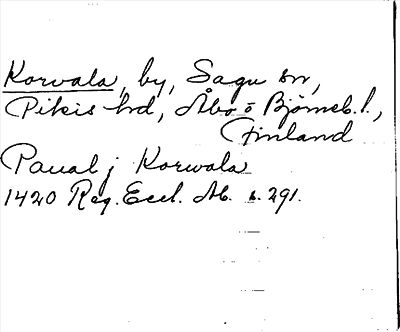 Korvala, by, Sagu sn,
Pikis hd, Åbo o Björneb. l.,
Finland
Paual j Korwala
1420 Reg. Eccl. Ab. s. 291.